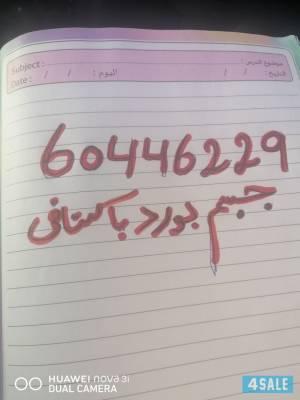 Subject : موضوع الدرس :
Date : / / اليوم : / / التاريخ :
60446229
جبسم بورد باكستاني
HUAWEI nova 3i
DUAL CAMERA
4SALE